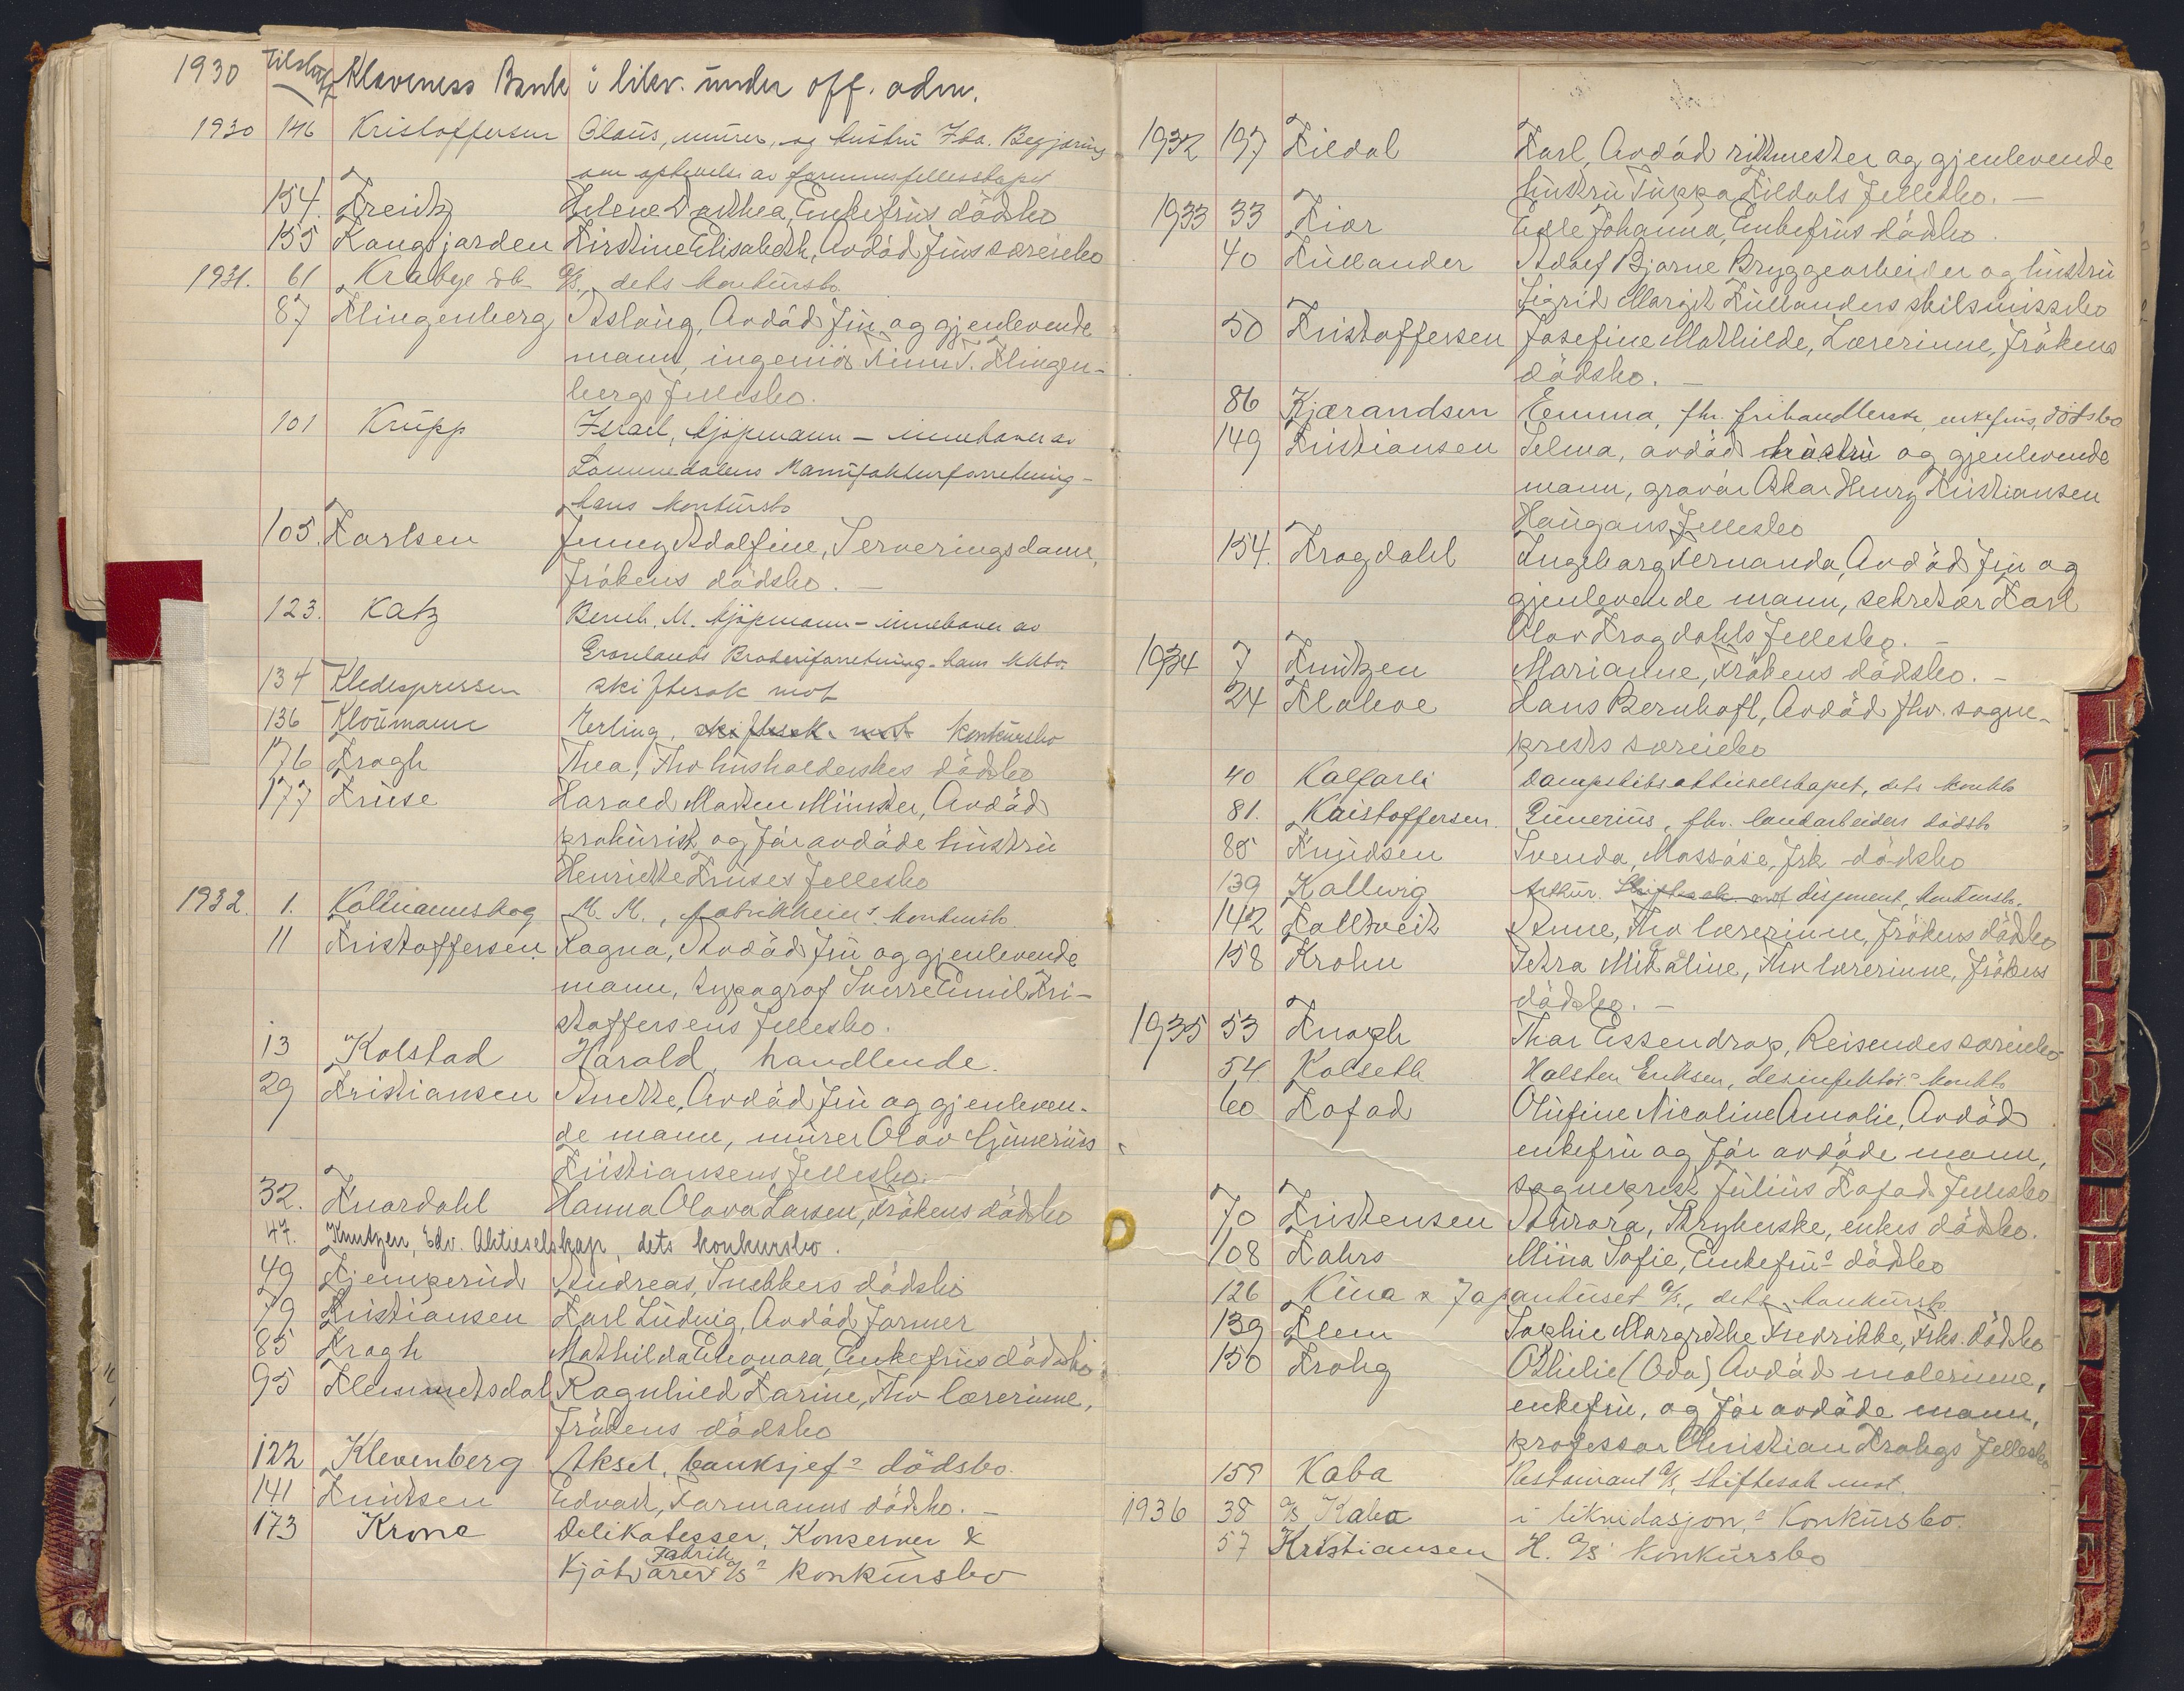 1930 Tilslutt Klaveness Bank i likv. under off. adm.
1930 146 Kristoffersen Olaus, murer, og hustru Ida. Begjæring
om ophevelse av formuesfellesskapet
154. Kreitz Helene Dorthea, Enkefrus dödsbo
155 Kongsjorden Kirstine Elisabeth, Avdöd frus særeiebo
1931. 61 Krabye A/S, dets konkursbo
87 Klingenberg Aslaug, Avdöd fru og gjenlevende
mann, ingeniör Finn T. Klingen-
bergs fellesbo.
101 Krupp Israel, kjöpmann - innehaver av
Lommedalens Manufakturforretning -
hans konkursbo
105. Karlsen Jenny Adolfine, Serveringsdame,
frökens dödsbo. -
123. Katz Bernh. M. kjöpmann - innehaver av
Grønlands Broderiforretning - hans kkbo.
134 Kledespressen skiftesak mot
136 Kloumann Erling, skiftesak mot konkursbo
176 Kragh Thea, Fhv husholderskes dödsbo
177 Kruse Harald Marten Münster, Avdöd
prokurist og för avdöde hustru
Henriette Kruses fellesbo
1932. 1. Kallmannskog M. M., fabrikkeiers konkursbo.
11 Kristoffersen Ragna, Avdöd fru og gjenlevende
mann, typograf Sverre Emil Kri-
stoffersens fellesbo.
13 Kolstad Harald, handlende.
29 Kristiansen Anette, Avdöd fru og gjenleven-
de mann, murer Olav Gunerius
Kristiansens fellesbo.
32. Knardahl Hanna Olava Larsen, Frökens dödsbo
47. Knutzen, Edv. Aktieselskap, dets konkursbo.
49 Kjemperud Andreas, Snekkers dödsbo
79 Kristiansen Karl Ludvig, Avdöd former
85 Kragh Mathilda Eleonora, Enkefrus dödsbo
95 Klemmetsdal Ragnhild Karine, Fhv lærerinne,
frökens dödsbo
122 Klevenberg Aksel, banksjefs dödsbo.
141 Knutsen Edvart, Formanns dödsbo. -
173 Krone Delikatesser, Konserver &
Kjötvarer Fabrik A/S' konkursbo
1932 197 Kildal Karl, Avdöd rittmester og gjenlevende
hustru Tuppa Kildals fellesbo. -
1933 33 Kiær Edle Johanna, Enkefrus dödsbo.
40 Kullander Adolf Bjarne Bryggearbeider og hustru
Sigrid Margit Kullanders skilsmissebo
50 Kristoffersen Josefine Mathilde, Lærerinne, frökens
dödsbo. -
86 Kjærandsen Emma, fhv. frihandlerske, enkefrus, dödsbo
149 Kristiansen Selma, avdöd hustru og gjenlevende
mann, gravör Oskar Henry Kristiansen
Haugans fellesbo
154. Krogdahl Ingeborg Fernanda, Avdöd fru og
gjenlevende mann, sekretær Karl
Olav Krogdahls fellesbo. -
1934 7 Knutzen Marianne, Frökens dödsbo. -
24 Klokve Hans Bernhoft, Avdöd fhv. sogne-
prests særeiebo
40 Kalfarli Dampskibsaktieselskapet, dets konkbo
81. Kristoffersen. Gunerius, fhv. landarbeiders dödsbo
85 Knudsen Svenda, Massöse, frk dödsbo
139 Kallevig Arthur. Skiftesak mot disponent, konkursbo.
142 Kalltveit Anne, Fhv lærerinne, frökens dödsbo
158 Krohn Petra Mikaline, Fhv lærerinne, frökens
dödsbo. -
1935 53 Knoph Thor Essendrop, Reisendes særeiebo
54 Kolseth Halsten Eriksen, desinfektörs konkbo
60 Kofod Olufine Nicoline Amalie, Avdöd
enkefru og för avdöde mann,
sogneprest Julius Kofods fellesbo
70 Kristensen Aurora, Strykerske, enkes dödsbo.
108 Kahrs Mina Sofie, Enkefrus dödsbo
126 Kina & Japanhuset A/S, dets konkursbo
139 Klem Sophie Margrethe Fredrikke, Frks. dödsbo
150 Krohg Othilie (Oda) Avdöd malerinne,
enkefru, og för avdöde mann,
professor Christian Krohgs fellesbo
159 Kaba Restaurant A/S, skiftesak mot.
1936 38 A/S Kaba i likvidasjon,s Konkursbo.
57 Kristiansen H. A/S' konkursbo
I
M
O
P
R
S
T
U